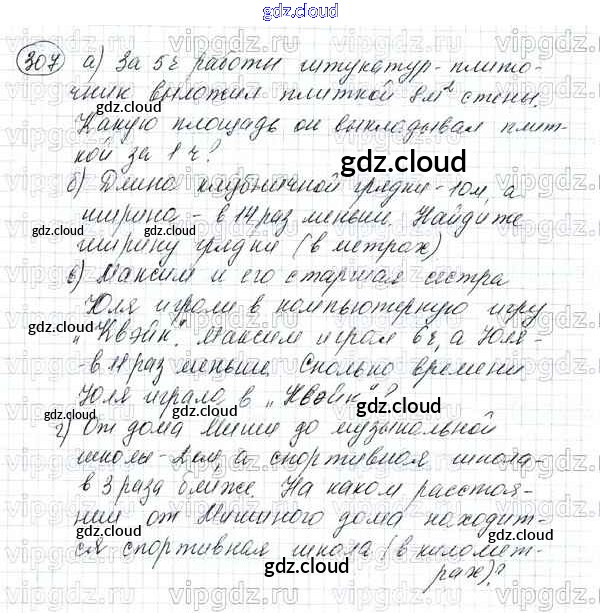 gdz.cloud
307 а) За 5 ч работы штукатур-плиточ-
ник выложил плиткой 8 м² стены.
Какую площадь он выкладывал плит-
кой за 1 ч?
б) Длина клубничной грядки - 10 м, а
ширина - в 14 раз меньше. Найдите
ширину грядки (в метрах)
в) Максим и его старшая сестра
Юля играли в компьютерную игру
„Квэйк". Максим играл 6 ч, а Юля-
- в 11 раз меньше. Сколько времени
Юля играла в „Квэйк"?
г) От дома Миши до музыкальной
школы - 2 км, а спортивная школа -
в 3 раза ближе. На каком расстоя-
нии от Мишиного дома находит-
ся спортивная школа (в километ-
рах)?